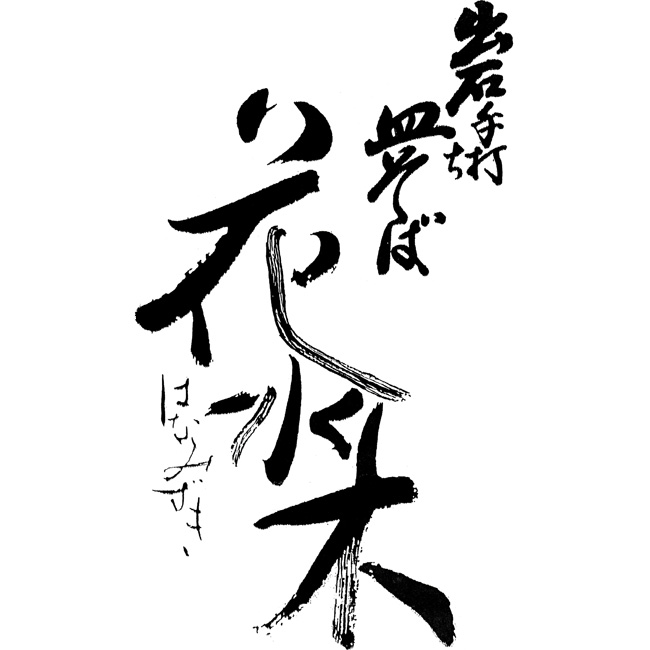 出石手打ち
皿そば
花水木
はなみずき